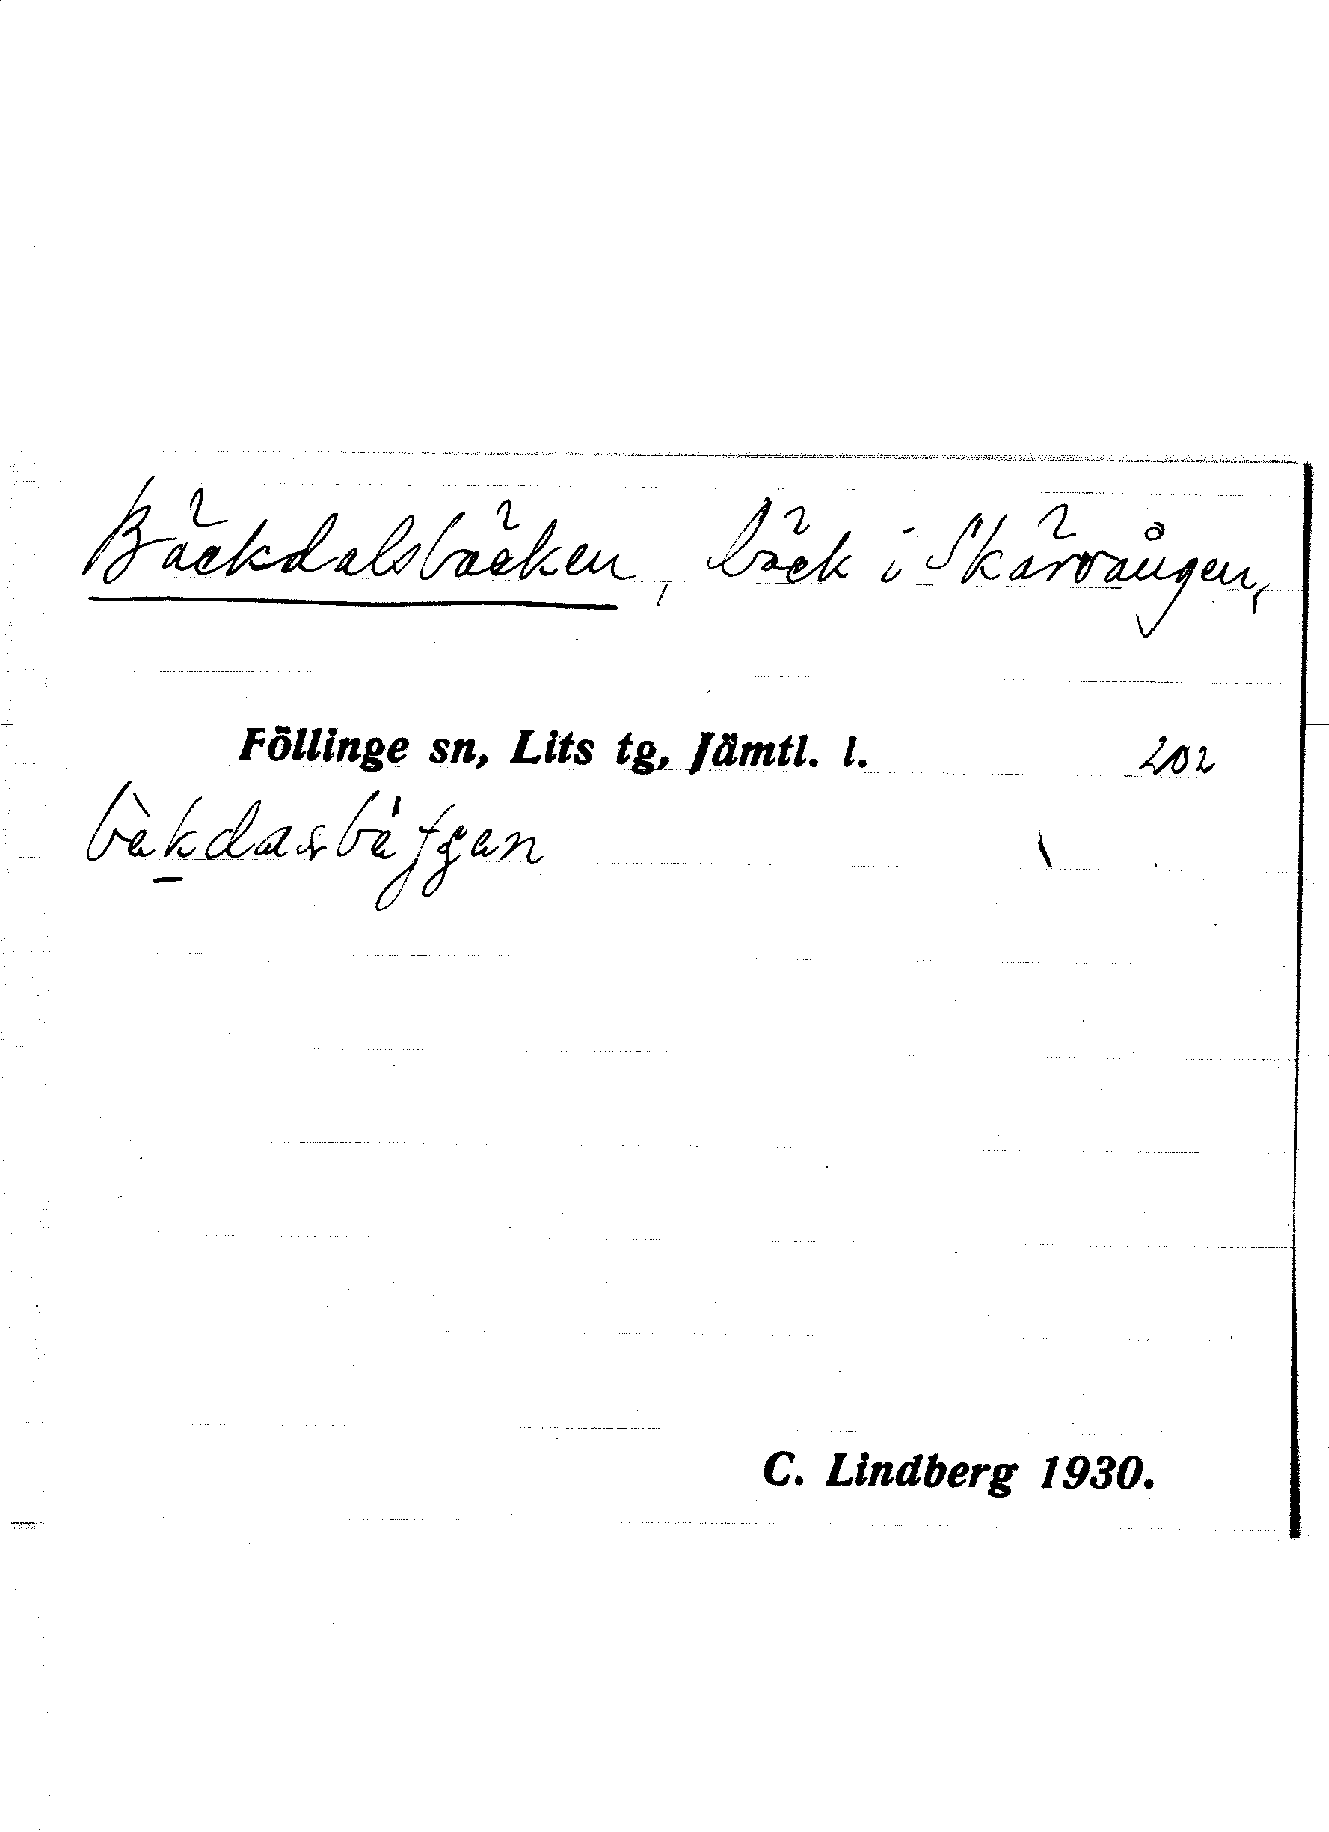 Bäckdalsbäcken, bäck i Skärvången,
Föllinge sn, Lits tg, Jämtl. l. 202
C. Lindberg 1930.